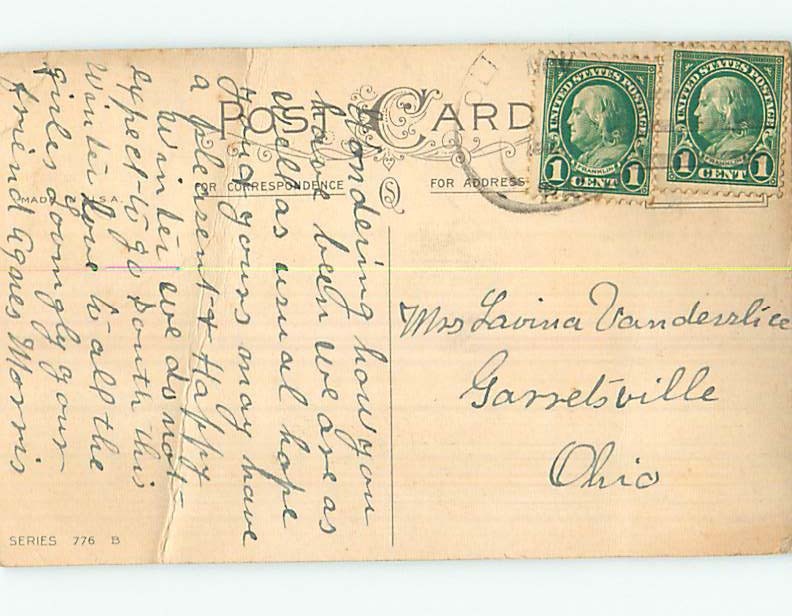 POST CARD
FOR CORRESPONDENCE
FOR ADDRESS
MADE IN U.S.A.
UNITED STATES POSTAGE
FRANKLIN
1 CENT 1
UNITED STATES POSTAGE
FRANKLIN
1 CENT 1
Wondering how you
have been we are as
well as usual hope
and yours may have
a pleasent & Happy
Winter we do not
expect to go south this
Winter love to all the
girls lovingly your
friend Agnes Morris
Mrs Lavina Vanderslice
Garretsville
Ohio
SERIES 776 B